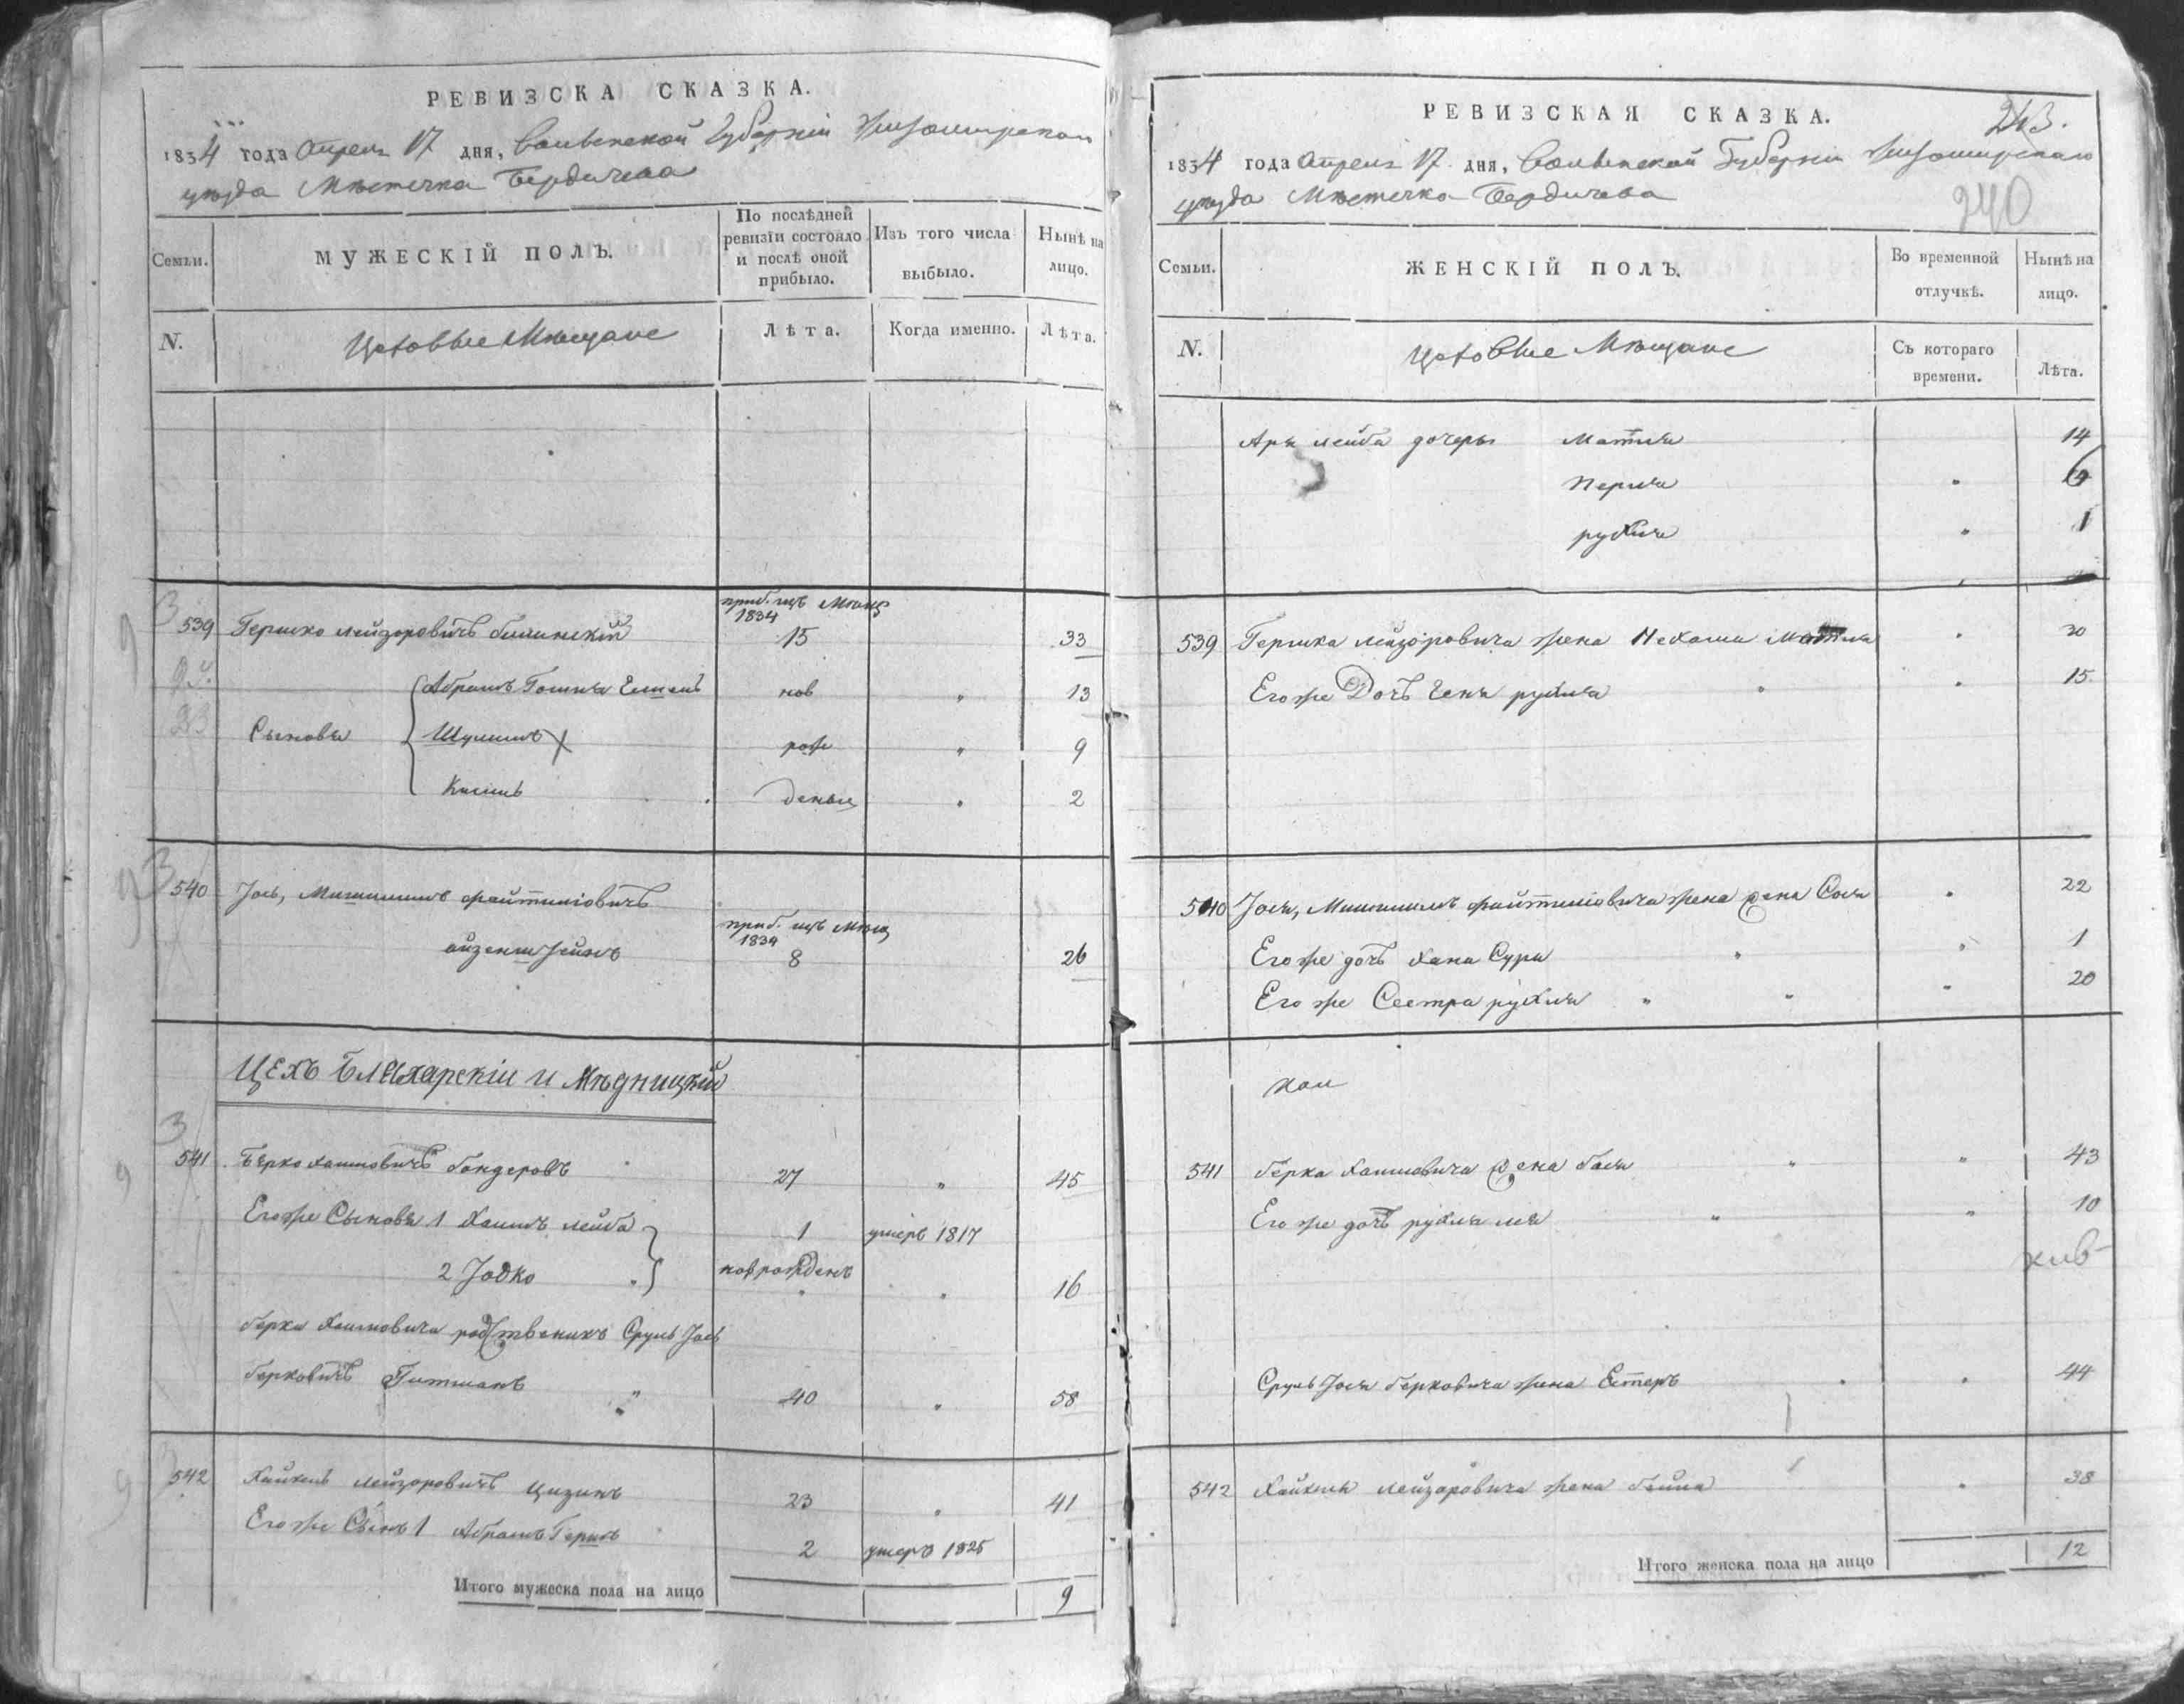 РЕВИЗСКА СКАЗКА.
1834 года Апреля 17 дня, Волынской Губерніи Житомирскаго
уезда Мѣстечка Бердичева
Семьи.
МУЖЕСКІЙ ПОЛЪ.
По послѣдней ревизіи состояло и послѣ оной прибыло.
Изъ того числа выбыло.
Нынѣ на лицо.
N.
Цеховые Мѣщане
Лѣта.
Когда именно.
Лѣта.
приб. изъ Мѣщ
1834
539 Гершко Лейзоровичъ 15 33
Абрамъ нов " 13
Сыновья Шулимъ рож " 9
дены " 2
540 Іось, файтиліовичъ
приб. изъ Мѣщ
1834
айзенштейнъ 8 26
ЦЕХЪ Бляхарскій и Мѣдницкій
541 Берко Хаимовичъ бондеровъ 27 " 45
Его же Сыновья 1 Хаимъ лейба 1 умеръ 1817
2 Іодко новрожденъ " 16
берка Хаимовича родственикъ Сруль Іось
берковичъ Гитманъ " 40 " 58
542 Хайкель лейзоровичъ Цизинъ 23 " 41
Его же Сынъ 1 Абрамъ Гершъ 2 умеръ 1825
Итого мужеска пола на лицо 9
РЕВИЗСКАЯ СКАЗКА.
243.
1834 года Апреля 17 дня, Волынской Губерніи Житомирскаго
уезда Мѣстечка Бердичева
240
Семьи.
ЖЕНСКІЙ ПОЛЪ.
Во временной отлучкѣ.
Нынѣ на лицо.
N.
Цеховые Мѣщане
Съ котораго времени.
Лѣта.
Аря лейба дочеры 14
Перля "
рухля " 1
539 Гершка лейзоровича жена Нехама " 30
Его же Дочь Геня рухля " " 15
540 Іося, файтиліовича жена Сося " 22
Его же дочь хана Сура " " 1
Его же Сестра рухля " " " 20
541 берка Хаимовича жена бася " " 43
Его же дочь рухля лея " " 10
Сруль Іося берковича жена Естеръ " " 44
542 Хайкеля лейзоровича жена бейла " 38
Итого женска пола на лицо 12